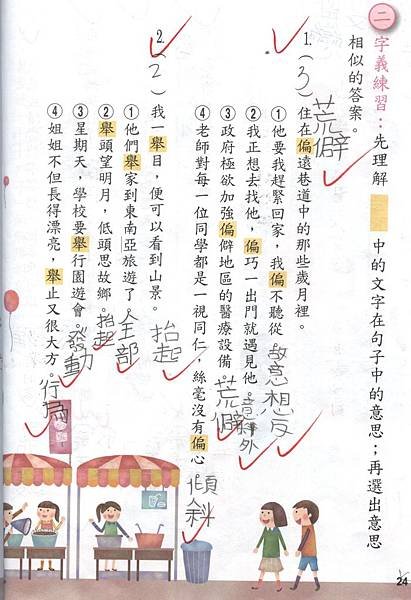 二 字義練習：先理解 中的文字在句子中的意思；再選出意思
相似的答案。
1.（3）住在偏遠巷道中的那些歲月裡。
荒僻
①他要我趕緊回家，我偏不聽從。故意想反
②我正想去找他，偏巧一出門就遇見他。意外
③政府極欲加強偏僻地區的醫療設備。荒僻
④老師對每一位同學都是一視同仁，絲毫沒有偏心。傾斜
2.（2）我一舉目，便可以看到山景。抬起
①他們舉家到東南亞旅遊了。全部
②舉頭望明月，低頭思故鄉。抬起
③星期天，學校要舉行園遊會。發動
④姐姐不但長得漂亮，舉止又很大方。行為
24